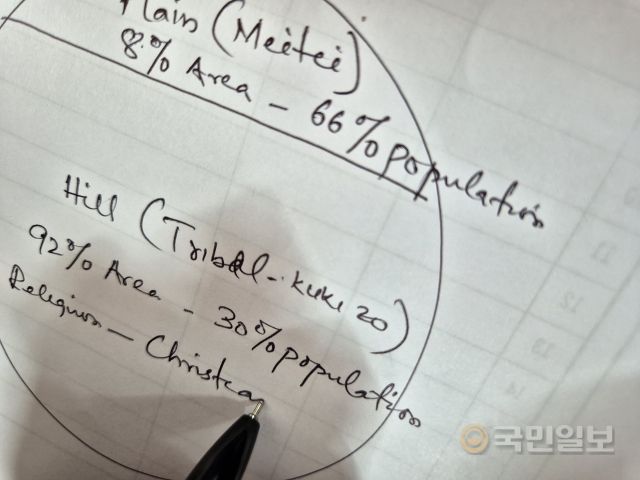 Plain (Meitei)
8% Area - 66% population
Hill (Tribal - Kuki zo)
92% Area - 30% population
Religion - Christian
12
국민일보